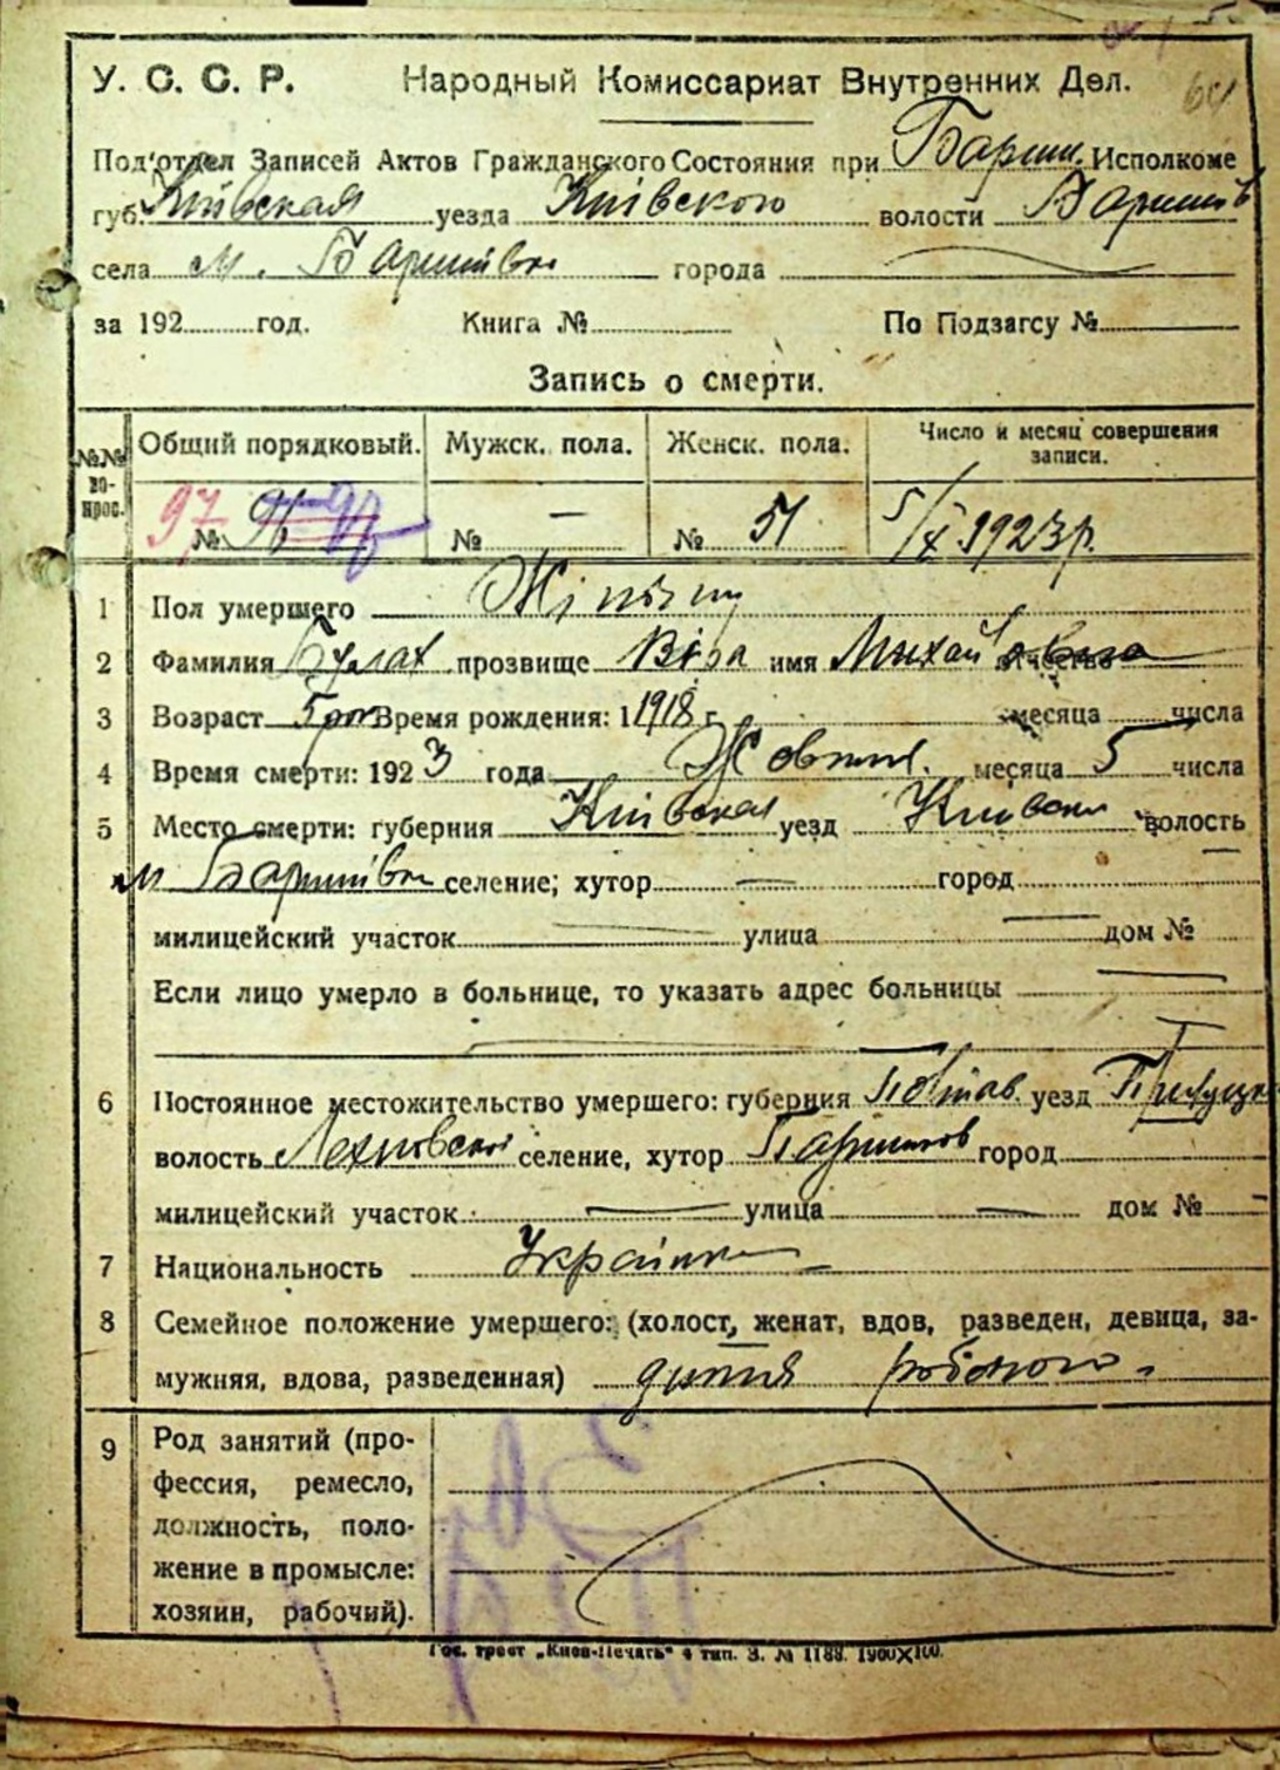 У. С. С. Р. Народный Комиссариат Внутренних Дел. 64
Под'отдел Записей Актов Гражданского Состояния при Бариш. Исполкоме
губ. Київская уезда Київского волости Баришів
села м. Баришівки города
за 192 год. Книга № По Подзагсу №
Запись о смерти.
№№ во-прос. Общий порядковый. Мужск. пола. Женск. пола. Число и месяц совершения записи.
97 № 96 № — № 51 5/X 1923 р.
1 Пол умершего Жіночий
2 Фамилия Булах прозвище Віра имя Михайловна отчество
3 Возраст 5 рок Время рождения: 1 1918 г. месяца числа
4 Время смерти: 192 3 года Жовтня. месяца 5 числа
5 Место смерти: губерния Київская уезд Київски волость
м Баришівки селение; хутор — город —
милицейский участок — улица — дом №
Если лицо умерло в больнице, то указать адрес больницы —
6 Постоянное местожительство умершего: губерния Полтав. уезд Прилуцк
волость селение, хутор город
милицейский участок — улица — дом № —
7 Национальность Українка
8 Семейное положение умершего: (холост, женат, вдов, разведен, девица, за-
мужняя, вдова, разведенная) дитя робочого.
9 Род занятий (про-
фессия, ремесло,
должность, поло-
жение в промысле:
хозяин, рабочий).
Гос. трест „Киев-Печать" 4 тип. З. № 1188. 1900X100.